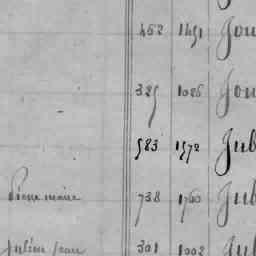 462 1451 Jou
325 1026 Jou
583 1572 Jub
Pierre marie 738 1760 Jub
Julien Jean 301 1002 Jul